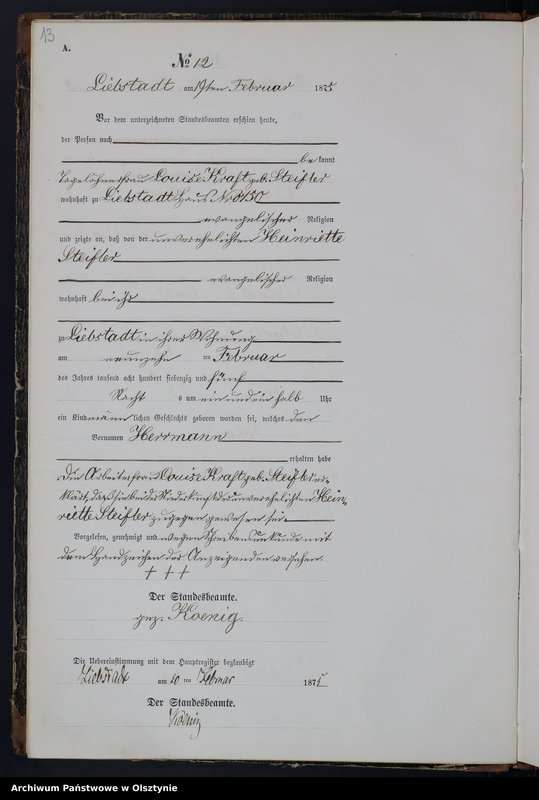 13
A.
No 12
Liebstadt am 19ten Februar 1875
Vor dem unterzeichneten Standesbeamten erschien heute,
der Person nach
be kannt
Tagelöhnerfrau Louise Kraft geb. Steifler
wohnhaft zu Liebstadt Haus No
evangelischer Religion
und zeigte an, daß von der unverehelichten Heinriette
Steifler
evangelischer Religion
wohnhaft bei ihr
zu Liebstadt in ihrer Wohnung
am neunzehn ten Februar
des Jahres tausend acht hundert siebenzig und fünf
Nacht s um ein und ein halb Uhr
ein Kind männ lichen Geschlechts geboren worden sei, welches den
Vornamen Herrmann
erhalten habe
Die Arbeiterfrau Louise Kraft geb. Steifler er-
klärt, daß sie bei der Niederkunft der unverehelichten Hein-
riette Steifler zugegen gewesen sei.
Vorgelesen, genehmigt und wegen Schreibensunkunde mit
dem Handzeichen der Anzeigenden versehen.
+ + +
Der Standesbeamte.
gez. Koenig.
Die Uebereinstimmung mit dem Hauptregister beglaubigt
Liebstadt am 20 ten Februar 1875
Der Standesbeamte.
Koenig
Archiwum Państwowe w Olsztynie